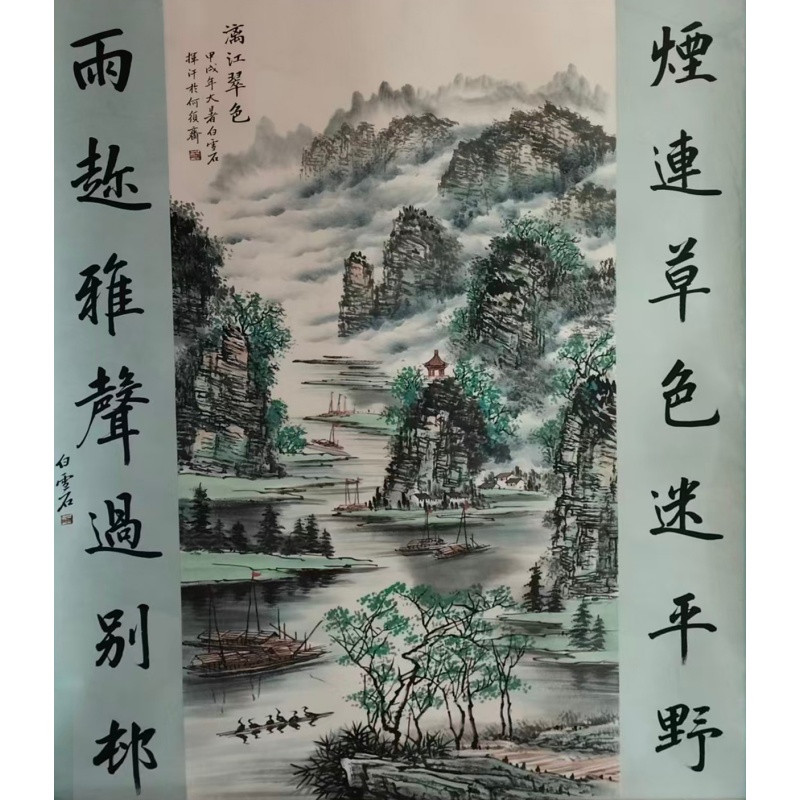 煙連草色迷平野
漓江翠色
甲戌年大暑白雪石
揮汗於何須齋
雨趂雅聲過別邨
白雪石